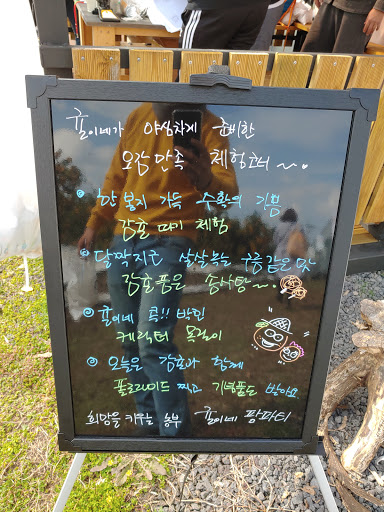 귤이네가 야심차게 준비한
오감만족 체험코너~.
한 봉지 가득 수확의 기쁨
감귤 따기 체험
달짝지근 살살녹는 구름같은 맛
감귤품은 솜사탕~.
귤이네 콕!! 박힌
캐릭터 목걸이
오늘은 감귤과 함께
폴로라이드 찍고 기념품도 받아요
희망을 키우는 농부 귤이네 팜파티